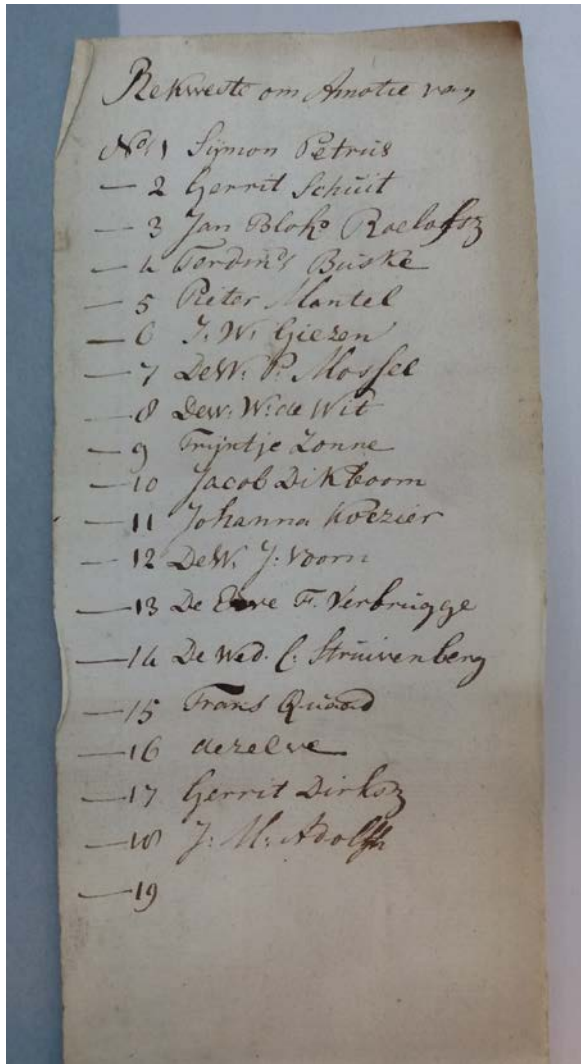 Rekweste om Amotie van
No. 1 Sijmon Petrus
— 2 Gerrit Schuit
— 3 Jan Blok Roelofsz
— 4 Ferdin.s Buske
— 5 Pieter Mantel
— 6 J. W. Giezen
— 7 De W. P. Mossel
— 8 De w. W. de Wit
— 9 Trijntje Zonne
— 10 Jacob Dikboom
— 11 Johanna Koezier
— 12 De W. J. Voorn
— 13 De F. Verbrugge
— 14 De Wed. C. Struivenberg
— 15 Frans Quaad
— 16 dezelve
— 17 Gerrit Dirksz
— 18 J. M. Adolfs
— 19